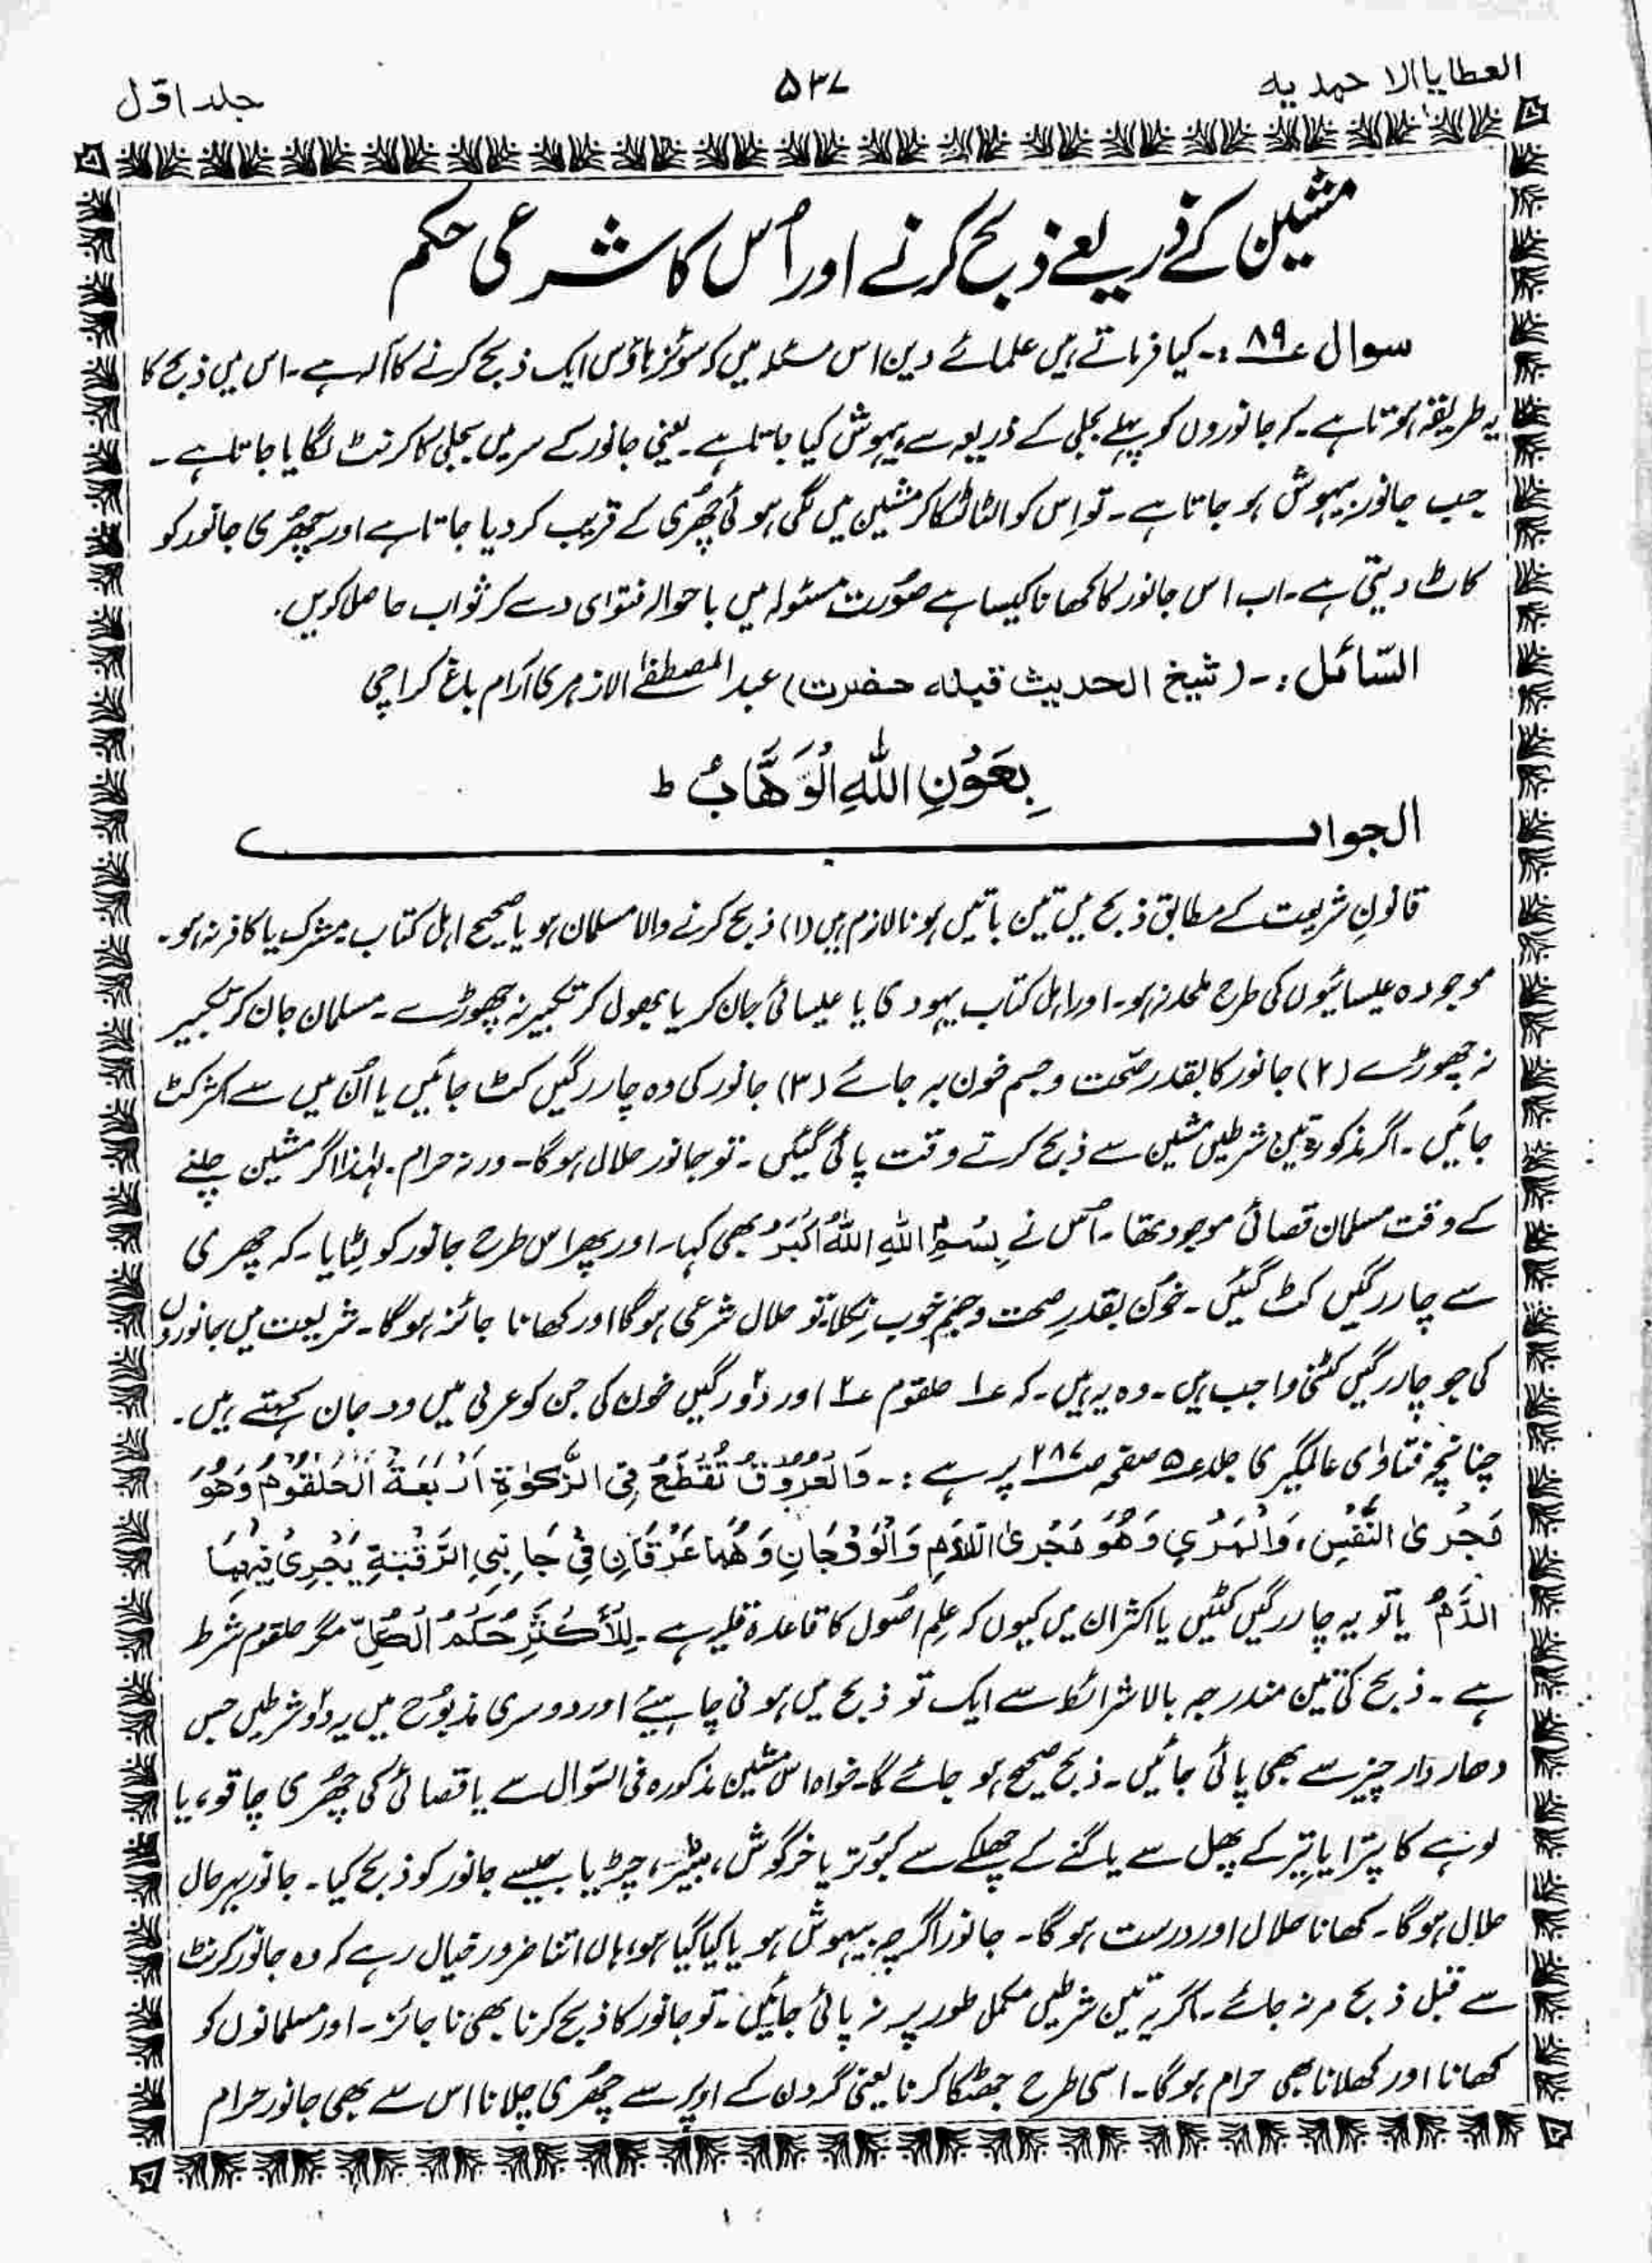 العطایا الاحمدیہ
۵۳۷
جلد اوّل
مشین کے ذریعے ذبح کرنے اور اُس کا شرعی حکم
سوال ۸۹؎ :۔ کیا فرماتے ہیں علمائے دین اس مسئلہ میں کہ سوئزہاؤس ایک ذبح کرنے کا آلہ ہے۔ اس میں ذبح کا
یہ طریقہ ہوتا ہے۔ کہ جانوروں کو پہلے بجلی کے ذریعہ سے بیہوش کیا جاتا ہے۔ یعنی جانور کے سر میں بجلی کا کرنٹ لگایا جاتا ہے۔
جب جانور بیہوش ہو جاتا ہے۔ تو اِس کو الٹا لٹکا کر مشین میں لگی ہوئی چھُری کے قریب کر دیا جاتا ہے اور چھُری جانور کو
کاٹ دیتی ہے۔ اب اس جانور کا کھانا کیسا ہے صُورت مسئولہ میں باحوالہ فتوٰی دے کر ثواب حاصل کریں۔
السّائل :۔ (شیخ الحدیث قبلہ حضرت) عبد المصطفےٰ الازہری آرام باغ کراچی
بِعَوْنِ اللّٰهِ الْوَهَّابُ ط
الجواب
قانونِ شریعت کے مطابق ذبح میں تین باتیں ہونا لازم ہیں (۱) ذبح کرنے والا مسلمان ہو یا صحیح اہل کتاب۔ مشرک یا کافر نہ ہو۔
موجودہ عیسائیوں کی طرح ملحد نہ ہو۔ اور اہل کتاب یہودی یا عیسائی جان کر یا بھول کر تکبیر نہ چھوڑے۔ مسلمان جان کر تکبیر
نہ چھوڑے (۲) جانور کا بقدر صحّت و جسم خون بہ جائے (۳) جانور کی وہ چار رگیں کٹ جائیں یا اُن میں سے اکثر کٹ
جائیں۔ اگر مذکورہ تین شرطیں مشین سے ذبح کرتے وقت پائی گئیں۔ تو جانور حلال ہوگا۔ ورنہ حرام۔ لہٰذا اگر مشین چلنے
کے وقت مسلمان قصائی موجود تھا۔ اُس نے بِسْمِ اللّٰهِ اَللّٰهُ اَكْبَرُ بھی کہا۔ اور پھر اس طرح جانور کو لِٹایا۔ کہ چھری
سے چار رگیں کٹ گئیں۔ خُون بقدرِ صحت و جسم خوب نِکلا۔ تو حلال شرعی ہوگا اور کھانا جائز ہوگا۔ شریعت میں جانوروں
کی جو چار رگیں کٹنی واجب ہیں۔ وہ یہ ہیں۔ کہ ۱؎ حلقوم ۲؎ اور دُو رگیں خون کی جن کو عربی میں ودجان کہتے ہیں۔
چنانچہ فتاوٰی عالمگیری جلد ۵ صفحہ ۲۸۷ پر ہے :۔ وَالْعُرُوْقُ تُقْطَعُ فِی الذَّکٰوةِ اَرْبَعَةُ الْحُلْقُوْمُ وَهُوَ
مَجْرَی النَّفَسِ، وَالْمَرِیِ وَهُوَ مَجْرَی اللَّادَمِ وَالْوَدْجَانِ وَهُمَا عَرْقَانِ فِیْ جَانِبَیِ الرَّقَبَةِ یَجْرِیْ فِیْهِمَا
الدَّمُ یا تو یہ چار رگیں کٹیں یا اکثر ان میں کیوں کہ عِلم اصُول کا قاعدہ کلیہ ہے۔ لِلْاَکْثَرِ حُکْمُ الْکُلِّ مگر حلقوم شرط
ہے۔ ذبح کی تین مندرجہ بالا شرائط سے ایک تو ذبح میں ہونی چاہیئے اور دوسری مذبوُح میں یہ دو شرطیں جس
دھار دار چیز سے بھی پائی جائیں۔ ذبح صحیح ہو جائے گا۔ خواہ اس مشین مذکورہ فی السّوال سے یا قصائی کی چھُری چاقو، یا
لوہے کا پترا یا تیر کے پھل سے یا گنے کے چھلکے سے کبوُتر یا خرگوش، بٹیر، چڑیا جیسے جانور کو ذبح کیا۔ جانور بہرحال
حلال ہوگا۔ کھانا حلال اور درست ہوگا۔ جانور اگرچہ بیہوش ہو یا کیا گیا ہو، ہاں اتنا ضرور خیال رہے کہ وہ جانور کرنٹ
سے قبل ذبح مر نہ جائے۔ اگر یہ تین شرطیں مکمل طور پر نہ پائی جائیں۔ تو جانور کا ذبح کرنا بھی ناجائز۔ اور مسلمانوں کو
کھانا اور کھلانا بھی حرام ہوگا۔ اسی طرح جھٹکا کرنا یعنی گردن کے اوپر سے چھُری چلانا اس سے بھی جانور حرام